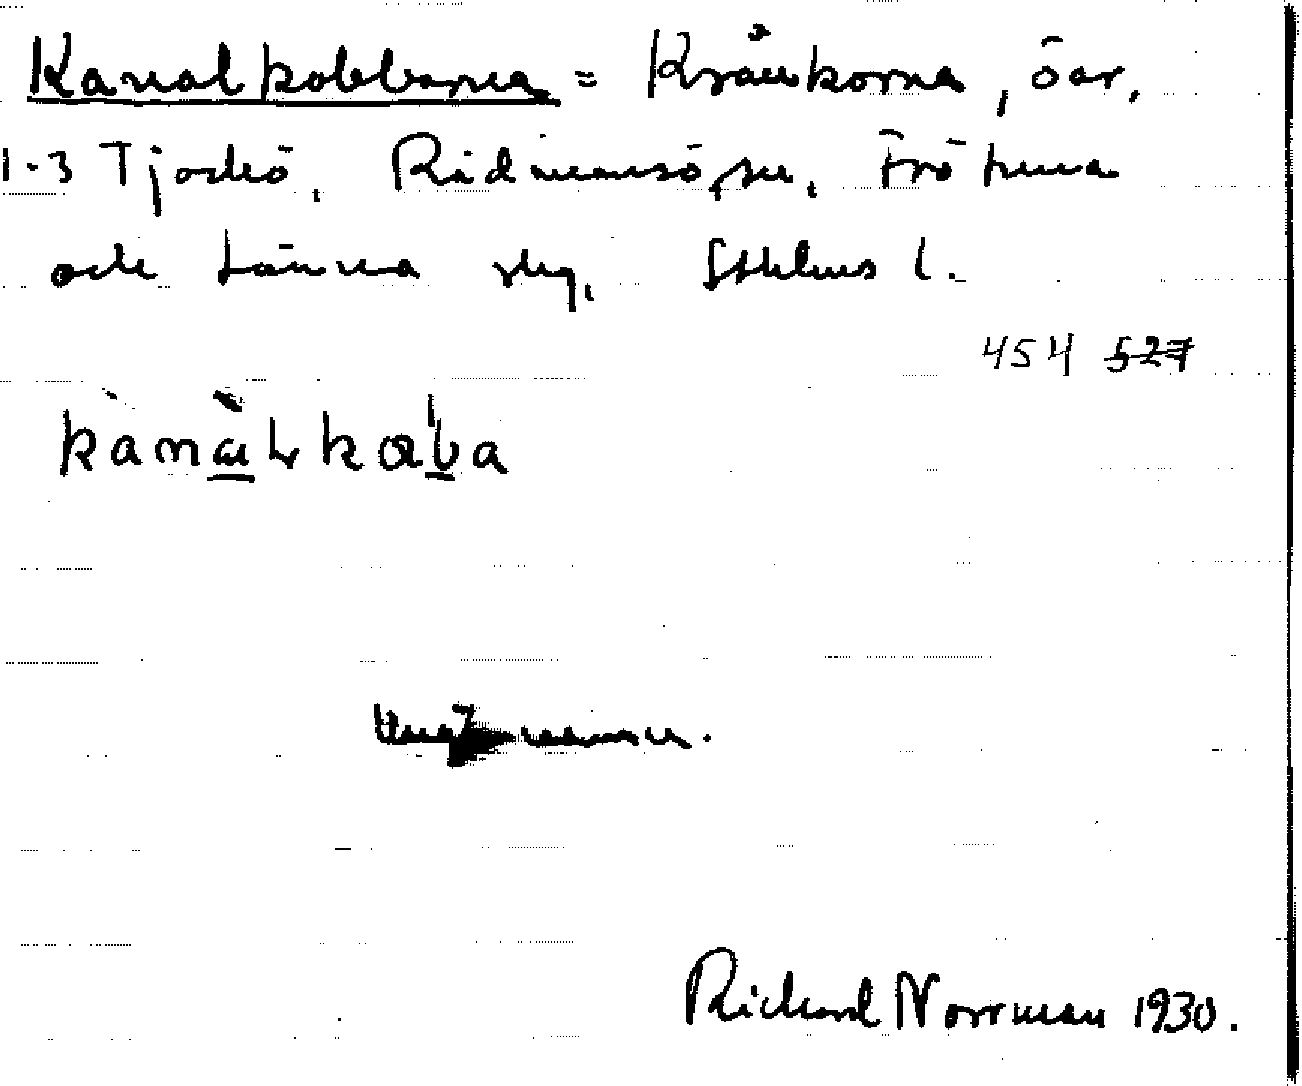 Kanalkobbarna = Kråukorna, öar,
1-3 Tjockö, Rådmansö sn, Frötuna
och Länna skg, Sthlms l.
454 527
kanalkåba
Richard Norrman 1930.